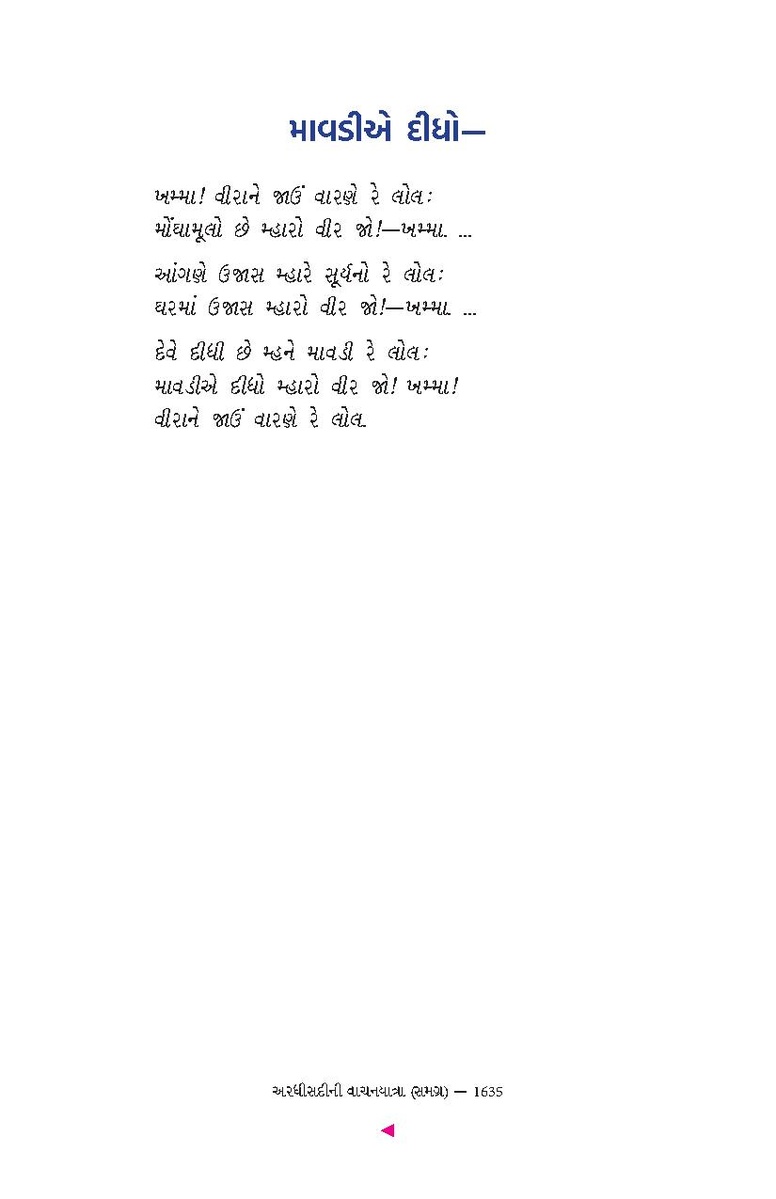 માવડીએ દીધો—
ખમ્મા! વીરાને જાઉં વારણે રે લોલ:
મોંઘામૂલો છે મ્હારો વીર જો!—ખમ્મા. ...
આંગણે ઉજાસ મ્હારે સૂર્યનો રે લોલ:
ઘરમાં ઉજાસ મ્હારો વીર જો!—ખમ્મા. ...
દેવે દીધી છે મ્હને માવડી રે લોલ:
માવડીએ દીધો મ્હારો વીર જો! ખમ્મા!
વીરાને જાઉં વારણે રે લોલ.
અરધીસદીની વાચનયાત્રા (સમગ્ર) — 1635